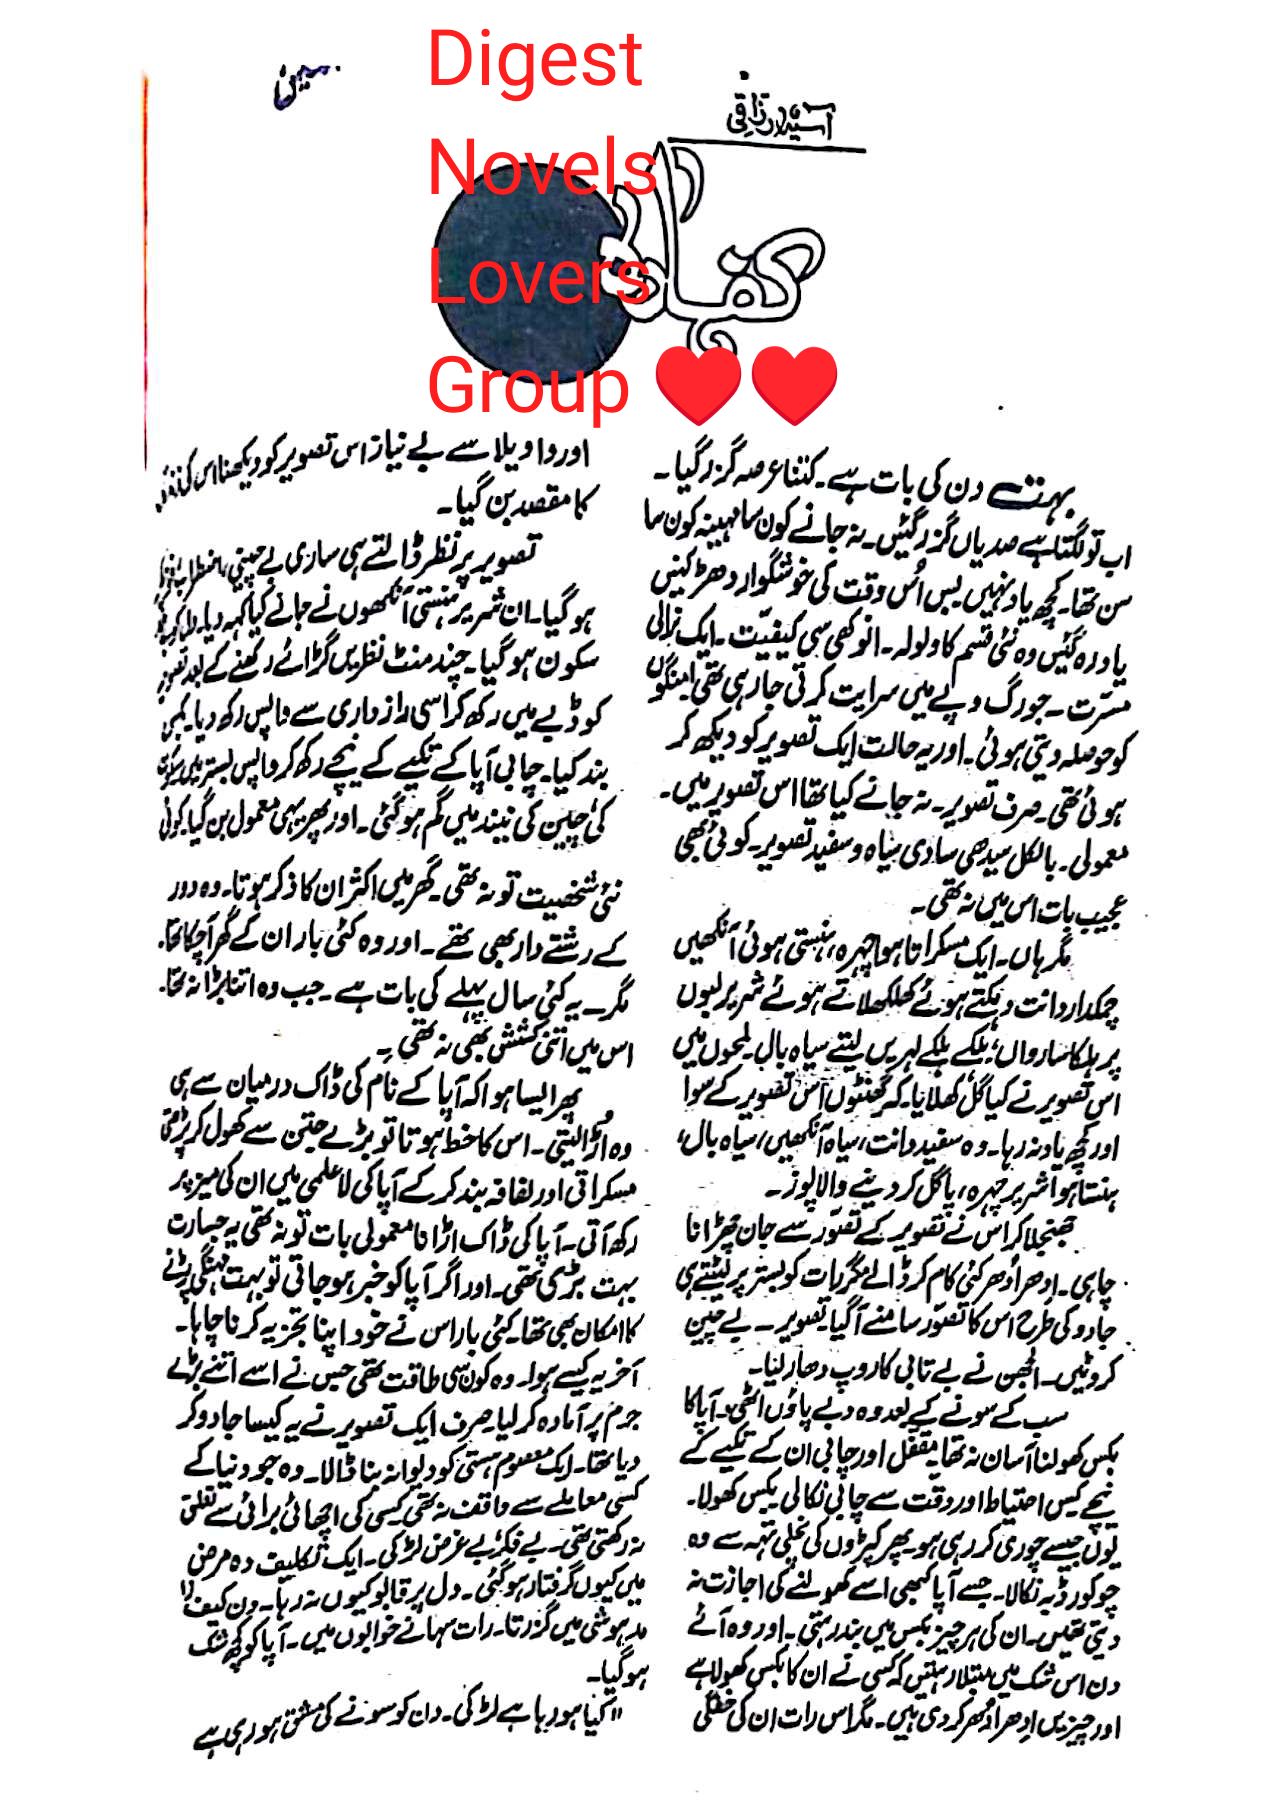 Digest
Novels
Lovers
Group ❤❤
آسیہ رزاقی
کفارہ
بہت سے دن کی بات ہے۔ کتنا عرصہ گزر گیا۔
اب تو لگتا ہے صدیاں گزر گئیں۔ نہ جانے کون سا مہینہ کون سا
سن تھا۔ کچھ یاد نہیں بس اُس وقت کی خوشگوار دھڑکنیں
یاد رہ گئیں وہ نئی قسم کا ولولہ۔ انوکھی سی کیفیّت۔ ایک نرالی
مسرّت۔ جو رگ و پے میں سرایت کرتی جا رہی تھی امنگوں
کو حوصلہ دیتی ہوئی۔ اور یہ حالت ایک تصویر کو دیکھ کر
ہوئی تھی۔ صرف تصویر۔ نہ جانے کیا تھا اس تصویر میں۔
معمولی۔ بالکل سیدھی سادی سیاہ و سفید تصویر۔ کوئی بھی
عجیب بات اس میں نہ تھی۔
مگر ہاں۔ ایک مسکراتا ہوا چہرہ، ہنستی ہوئی آنکھیں
چمکدار دانت دیکتے ہوئے کھلکھلاتے ہوئے شریر لبوں
پر ہلکا سا رواں، ہلکے ہلکے لہریں لیتے سیاہ بال۔ لمحوں میں
اس تصویر نے کیا گل کھلایا۔ کہ گھنٹوں اُس تصویر کے سوا
اور کچھ یاد نہ رہا۔ وہ سفید دانت، سیاہ آنکھیں، سیاہ بال،
ہنستا ہوا شریر چہرہ، پاگل کر دینے والا پوز۔
جھنجلا کر اس نے تصویر کے تصّور سے جان چھڑانا
چاہی۔ ادھر اُدھر کئی کام کر ڈالے مگر رات کو بستر پر لیٹتے ہی
جادو کی طرح اس کا تصّور سامنے آگیا۔ تصویر۔ بے چین
کروٹیں۔ الجھن نے بے تابی کا روپ دھار لیا۔
سب کے سونے کے بعد وہ دبے پاؤں اٹھی۔ آپا کا
بکس کھولنا آسان نہ تھا۔ مقفل اور چابی ان کے تکیے کے
نیچے کیس احتیاط اور دقت سے چابی نکالی بکس کھولا۔
یوں جیسے چوری کر رہی ہو۔ پھر کپڑوں کی نچلی تہہ سے وہ
چوکور ڈبہ نکالا۔ جسے آپا کبھی اسے کھولنے کی اجازت نہ
دیتی تھیں۔ ان کی ہر چیز بکس میں بند رہتی۔ اور وہ آئے
دن اس شک میں مبتلا رہتیں کہ کسی نے ان کا بکس کھولا ہے
اور چیزیں ادھر اُدھر کر دی ہیں۔ مگر اس رات ان کی خفگی
اور واویلا سے بے نیاز اس تصویر کو دیکھنا اس کی
کا مقصد بن گیا۔
تصویر پر نظر ڈالتے ہی ساری بے چینی،
ہو گیا۔ ان شریر ہنستی آنکھوں نے جانے کیا کہہ دیا۔
سکون ہو گیا۔ چند منٹ نظریں گڑائے رکھنے کے بعد تصویر
کو ڈبے میں رکھ کر اسی راز داری سے واپس رکھ دیا۔ بکس
بند کیا۔ چابی آپا کے تکیے کے نیچے رکھ کر واپس بستر میں
کی چین کی نیند میں گم ہو گئی۔ اور پھر یہی معمول بن گیا۔ کوئی
نئی شخصیت تو نہ تھی۔ گھر میں اکثر ان کا ذکر ہوتا۔ وہ دور
کے رشتے دار بھی تھے۔ اور وہ کئی بار ان کے گھر آ چکا تھا۔
مگر۔ یہ کئی سال پہلے کی بات ہے۔ جب وہ اتنا بڑا نہ تھا۔
اس میں اتنی کشش بھی نہ تھی۔
پھر ایسا ہوا کہ آپا کے نام کی ڈاک درمیان سے ہی
وہ اڑا لیتی۔ اس کا خط ہوتا تو بڑے جتن سے کھول کر پڑھتی
مسکراتی اور لفافہ بند کر کے آپا کی لا علمی میں ان کی میز پر
رکھ آتی۔ آپا کی ڈاک اڑانا معمولی بات تو نہ تھی یہ جسارت
بہت بڑی تھی۔ اور اگر آپا کو خبر ہو جاتی تو بہت مہنگی پڑنے
کا امکان بھی تھا۔ کئی بار اس نے خود اپنا تجزیہ کرنا چاہا۔
آخر یہ کیسے ہوا۔ وہ کون سی طاقت تھی جس نے اسے اتنے بڑے
جرم پر آمادہ کر لیا۔ صرف ایک تصویر نے یہ کیسا جادو کر
دیا تھا۔ ایک معصوم ہستی کو دیوانہ بنا ڈالا۔ وہ جو دنیا کے
کسی معاملے سے واقف نہ تھی کسی کی اچھائی برائی سے تعلق
نہ رکھتی تھی۔ بے فکر، بے غرض لڑکی۔ ایک تکلیف دہ مرض
میں کیوں گرفتار ہو گئی۔ دل پر قابو کیوں نہ رہا۔ دن کیف و
مدہوشی میں گزرتا۔ رات سہانے خوابوں میں۔ آپا کو کچھ شک
ہو گیا۔
"کیا ہو رہا ہے لڑکی۔ دن کو سونے کی مشق ہو رہی ہے